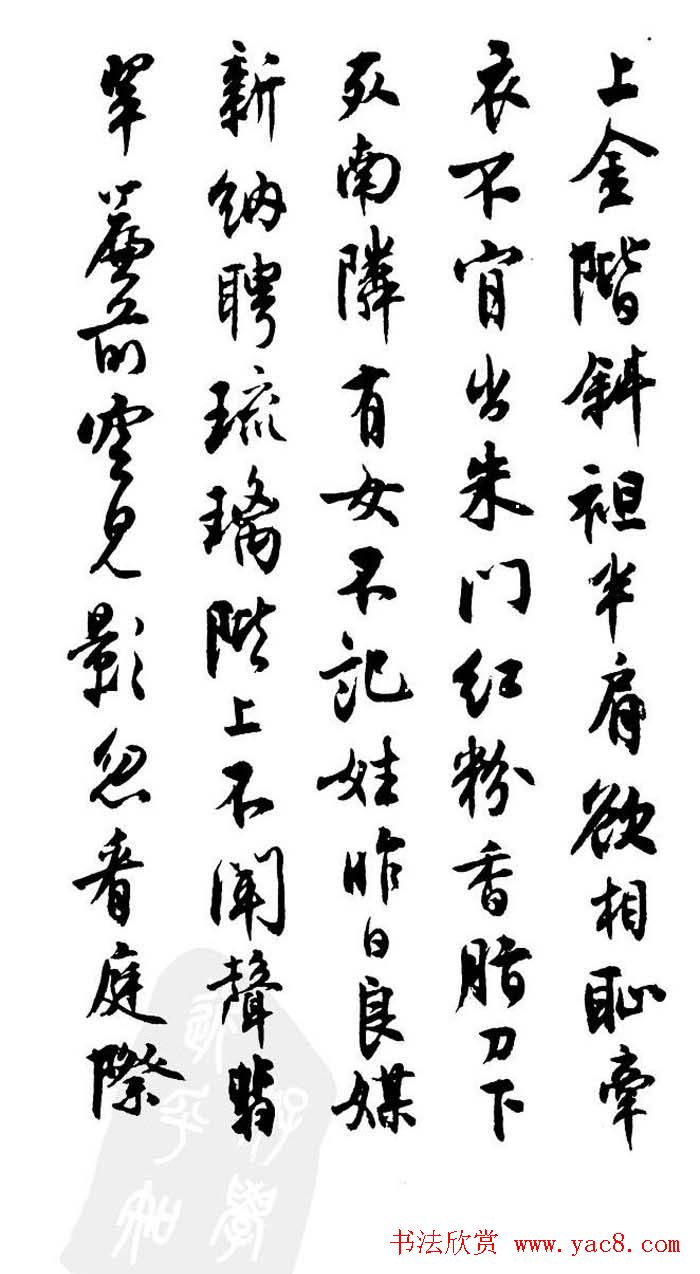 上金階斜袒半肩欲相恥牽
衣不肯出朱門紅粉香脂刀下
死南隣有女不記姓昨日良媒
新納聘琉璃階上不聞聲翡
翠簾前空見影忽看庭際
书法欣赏 www.yac8.com